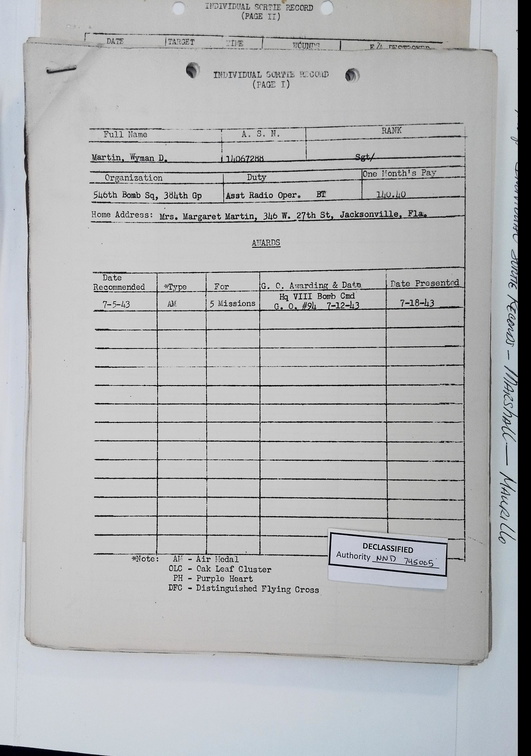 INDIVIDUAL SORTIE RECORD
(PAGE II)
DATE TARGET TIME ROUNDS E/A DESTROYED
INDIVIDUAL SORTIE RECORD
(PAGE I)
Full Name A. S. N. RANK
Martin, Wyman D. 14067288 Sgt/
Organization Duty One Month's Pay
546th Bomb Sq, 384th Gp Asst Radio Oper. BT 140.40
Home Address: Mrs. Margaret Martin, 346 W. 27th St, Jacksonville, Fla.
AWARDS
Date Recommended *Type For G. O. Awarding & Date Date Presented
7-5-43 AM 5 Missions Hq VIII Bomb Cmd G. O. #94 7-12-43 7-18-43
*Note: AM - Air Medal
OLC - Oak Leaf Cluster
PH - Purple Heart
DFC - Distinguished Flying Cross
DECLASSIFIED
Authority NND 745005
Individual Sortie Records - Marshall - Maurillo